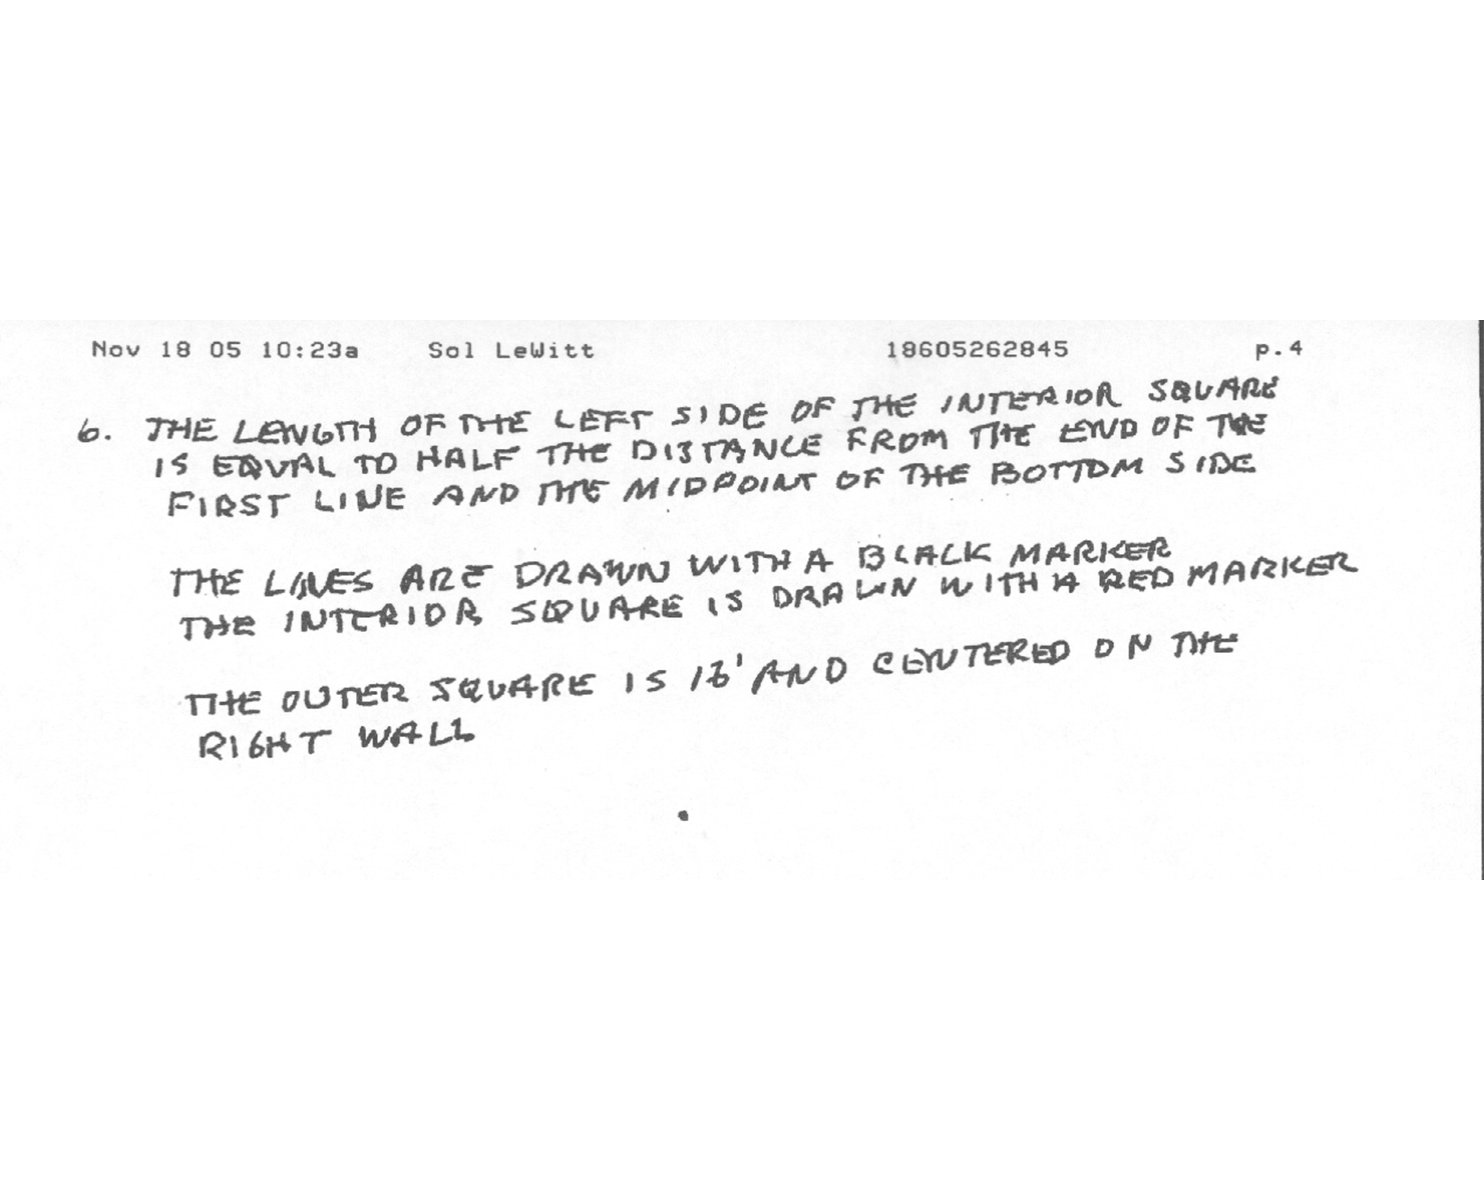 Nov 18 05 10:23a Sol LeWitt 18605262845 p.4
6. THE LENGTH OF THE LEFT SIDE OF THE INTERIOR SQUARE
IS EQUAL TO HALF THE DISTANCE FROM THE END OF THE
FIRST LINE AND THE MIDPOINT OF THE BOTTOM SIDE
THE LINES ARE DRAWN WITH A BLACK MARKER
THE INTERIOR SQUARE IS DRAWN WITH A RED MARKER
THE OUTER SQUARE IS AND CENTERED ON THE
RIGHT WALL